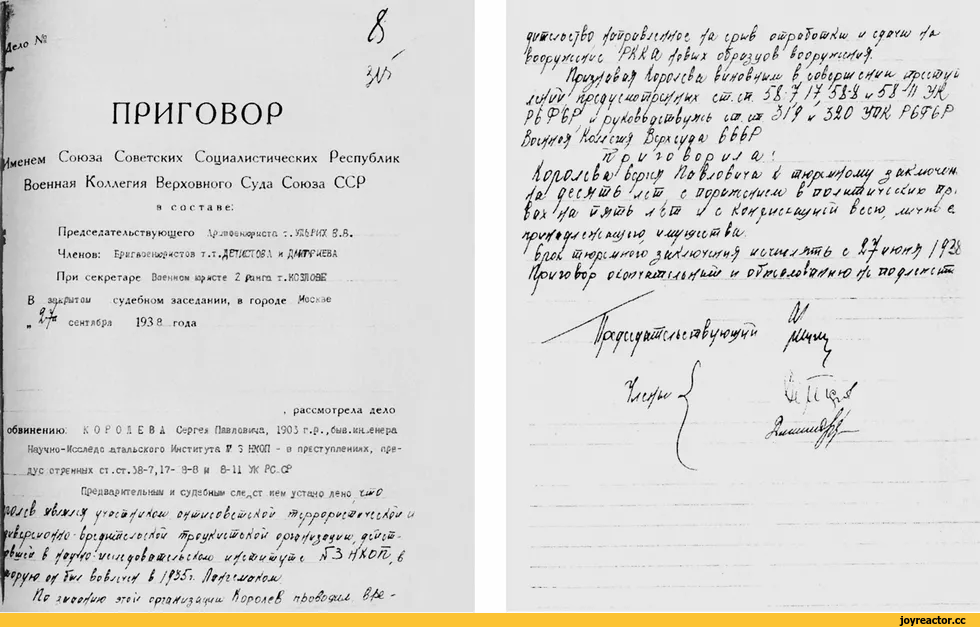 8
Дело №
ПРИГОВОР
Именем Союза Советских Социалистических Республик
Военная Коллегия Верховного Суда Союза ССР
в составе:
Председательствующего Армвоенюриста т. УЛЬРИХ В.В.
Членов: Бригвоенюристов т.т. ДЕТИСТОВА и ДМИТРИЕВА
При секретаре Военном юристе 2 ранга т. КОЗЛОВЕ
В закрытом судебном заседании, в городе Москве
„ 27" сентября 1938 года
, рассмотрела дело
обвинению: КОРОЛЕВА Сергея Павловича, 190 г.р., быв. инженера
Научно-Исследо ательского Института № 3 НКОП - в преступлениях, пре-
дус отренных ст.ст.58-7,17- 8-8 и 8-11 УК РС СР
Предварительным и судебным след ст ием устано лено, что
ролев являлся участником антисоветской террористической и
диверсионно-вредительской троцкистской организации, дейст-
вовшей в научно-исследовательском институте №3 НКОП, в
торую он был вовлечен в 1935г. Лангемаком.
По заданию этой организации Королев проводил вре-
дительство направленное на срыв отработки и сдачи на
вооружение РККА новых образцов вооружения.
Признавая Королева виновным в совершении преступ
лений предусмотренных ст.ст. 58-7, 17, 58-8 и 58-11 УК
РСФСР и руководствуясь ст.ст 319 и 320 УПК РСФСР
Военная Коллегия Верхсуда СССР
Приговорила:
Королева Сергея Павловича к тюремному заключен.
на десять лет с поражением в политических пр.
вах на пять лет и с конфискацией всего, лично е
принадлежащего имущества.
Срок тюремного заключения исчислять с 27 июня 1938
Приговор окончательный и обжалованию не подлежит
Председательствующий
Члены
joyreactor.cc